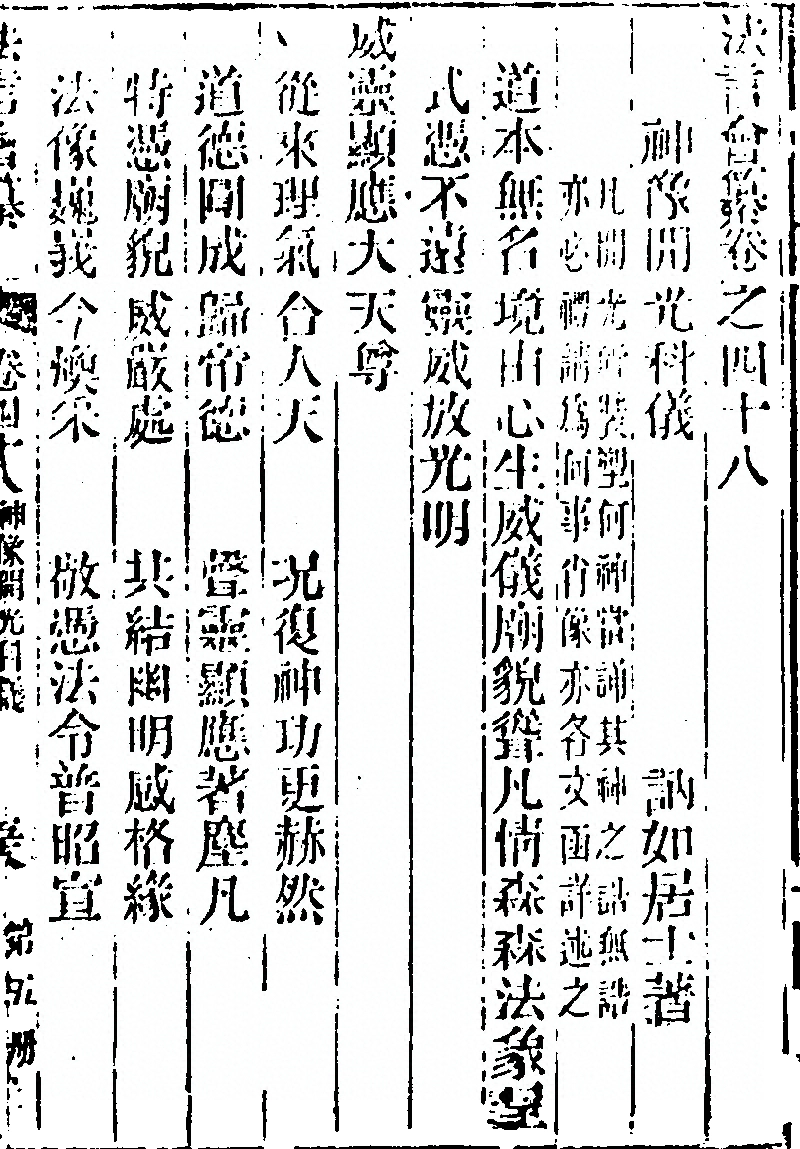 法言會纂卷之四十八
神像開光科儀 訥如居士著
凡開光所裝塑何神當誦其神之誥無誥
亦必禮請為何事肖像亦各文函詳述之
道本無名境由心生威儀廟貌聳凡情森森法象聖
式憑不遠靈威放光明
威靈顯應大天尊
從來理氣合人天 况復神功更赫然
道德闡成歸帝德 聲靈顯應著塵凡
特憑廟貌威嚴處 共結幽明感格緣
法像巍峩今煥采 敬憑法令普昭宣
法言會纂 卷四十八 神像開光科儀 第五册